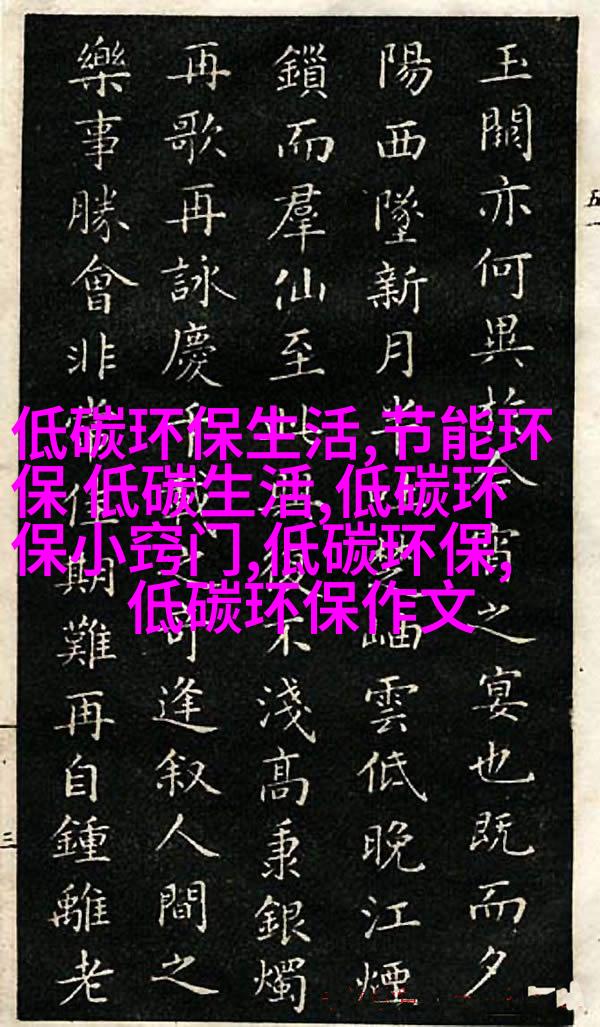 玉闕亦何異於今宵之宴也既而夕
陽西墜新月半楚岫雲低晚江煙
鎖而羣仙至此不淺高秉銀燭
再歌再詠慶千載之奇逢叙人間之
樂事勝會非常佳期難再自鍾離老
低碳环保生活,节能环
保 低碳生活,低碳环
保小窍门,低碳环保,
低碳环保作文
五一
三